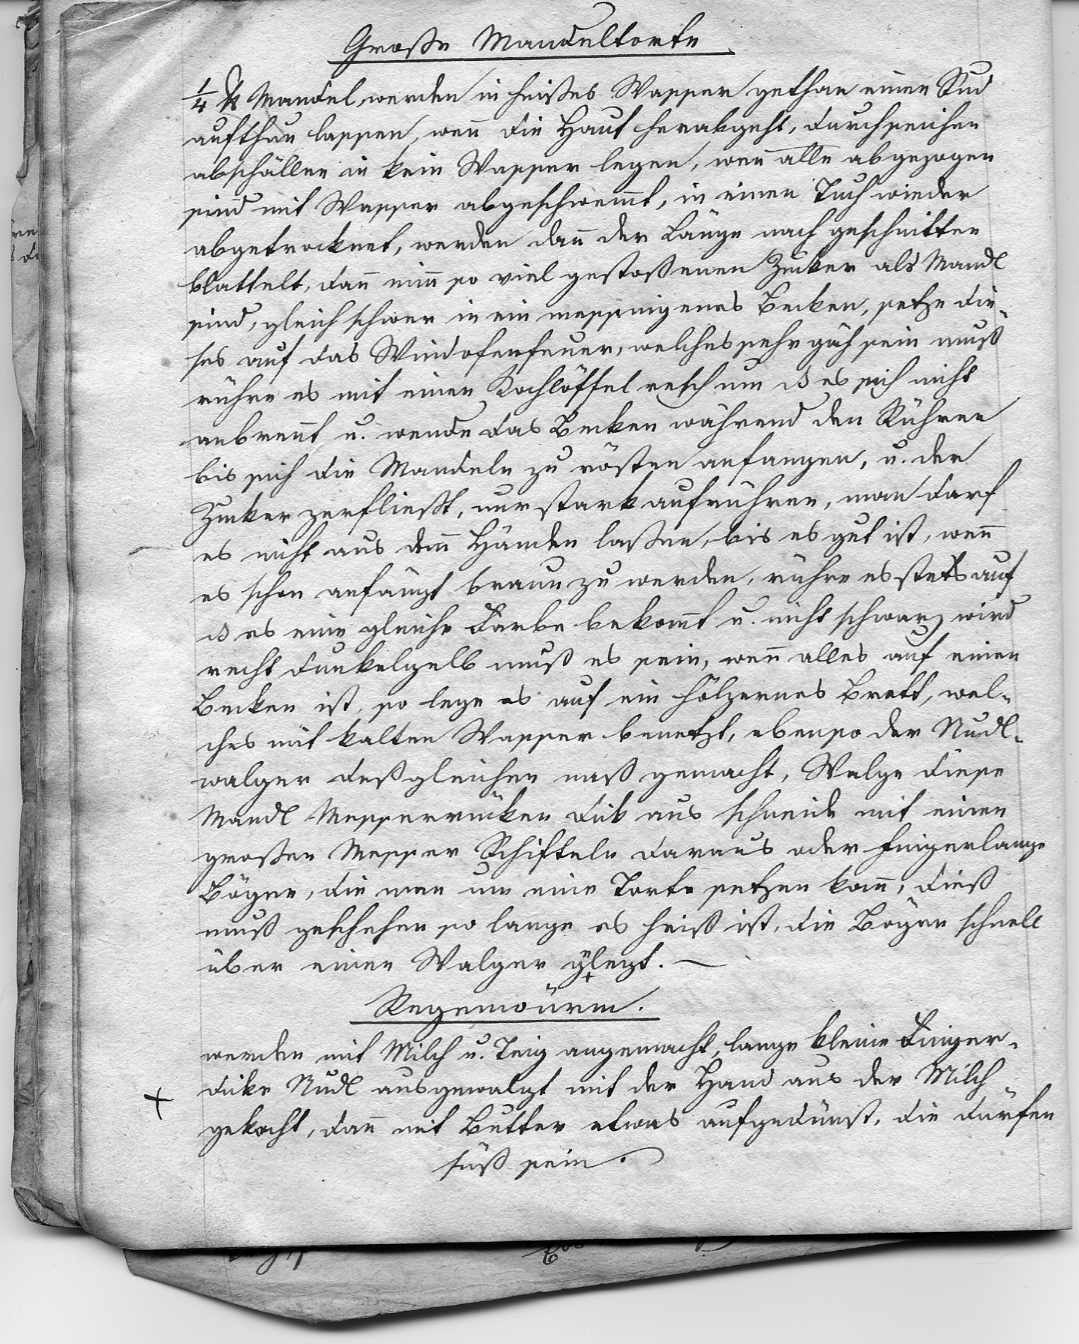 Große Mandeltorte.
1/4 ℔ Mandel, werden in heißes Wasser gethan einen Sud
aufthun lassen, wen̄ die Haut herabgeht, durchseichen
abschällen in kein Wasser legen, wen̄ alle abgezogen
sind mit Wasser abgeschwem̄t, in einen Tuch wieder
abgetrocknet, werden dan̄ der Länge nach geschnitten
blattelt, dan̄ nim̄ so viel gestoßenen Zucker als Mandl
sind, gleich schwer in ein messingenes Becken, setze die-
ses auf das Windofenfeuer, welches sehr gäh sein muß
rühre es mit einen Kochlöffel resch um daß es sich nicht
anbren̄t u. wende das Becken während den Rühren
bis sich die Mandeln zu rösten anfangen, u. der
Zucker zerfließt, nur stark aufrühren, man darf
es nicht aus den Händen laßen, bis es gut ist, wen̄
es schon anfängt braun zu werden, rühre es stets auf
daß es eine gleiche Farbe bekom̄t u. nicht schwarz wird
recht dunkelgelb muß es sein, wen̄ alles auf einen
Becken ist, so lege es auf ein hölzernes Brett, wel-
ches mit kalten Wasser benetzt, ebenso der Nudl-
walger deßgleichen naß gemacht, Walge diese
Mandl Messerrücken dick aus schneide mit einen
großen Messer Schifteln daraus oder fingerlange
Bögen, die man um eine Torte setzen kan̄, dieß
muß geschehen so lange es heiß ist, die Bögen schnell
über einen Walger glegt. —
Regenwürm.
werden mit Milch u. Teig angemacht, lange kleine Finger-
dicke Nudl ausgewalgt mit der Hand aus der Milch
gekocht, dan̄ mit Butter etwas aufgedünst, die dürfen
süß sein.